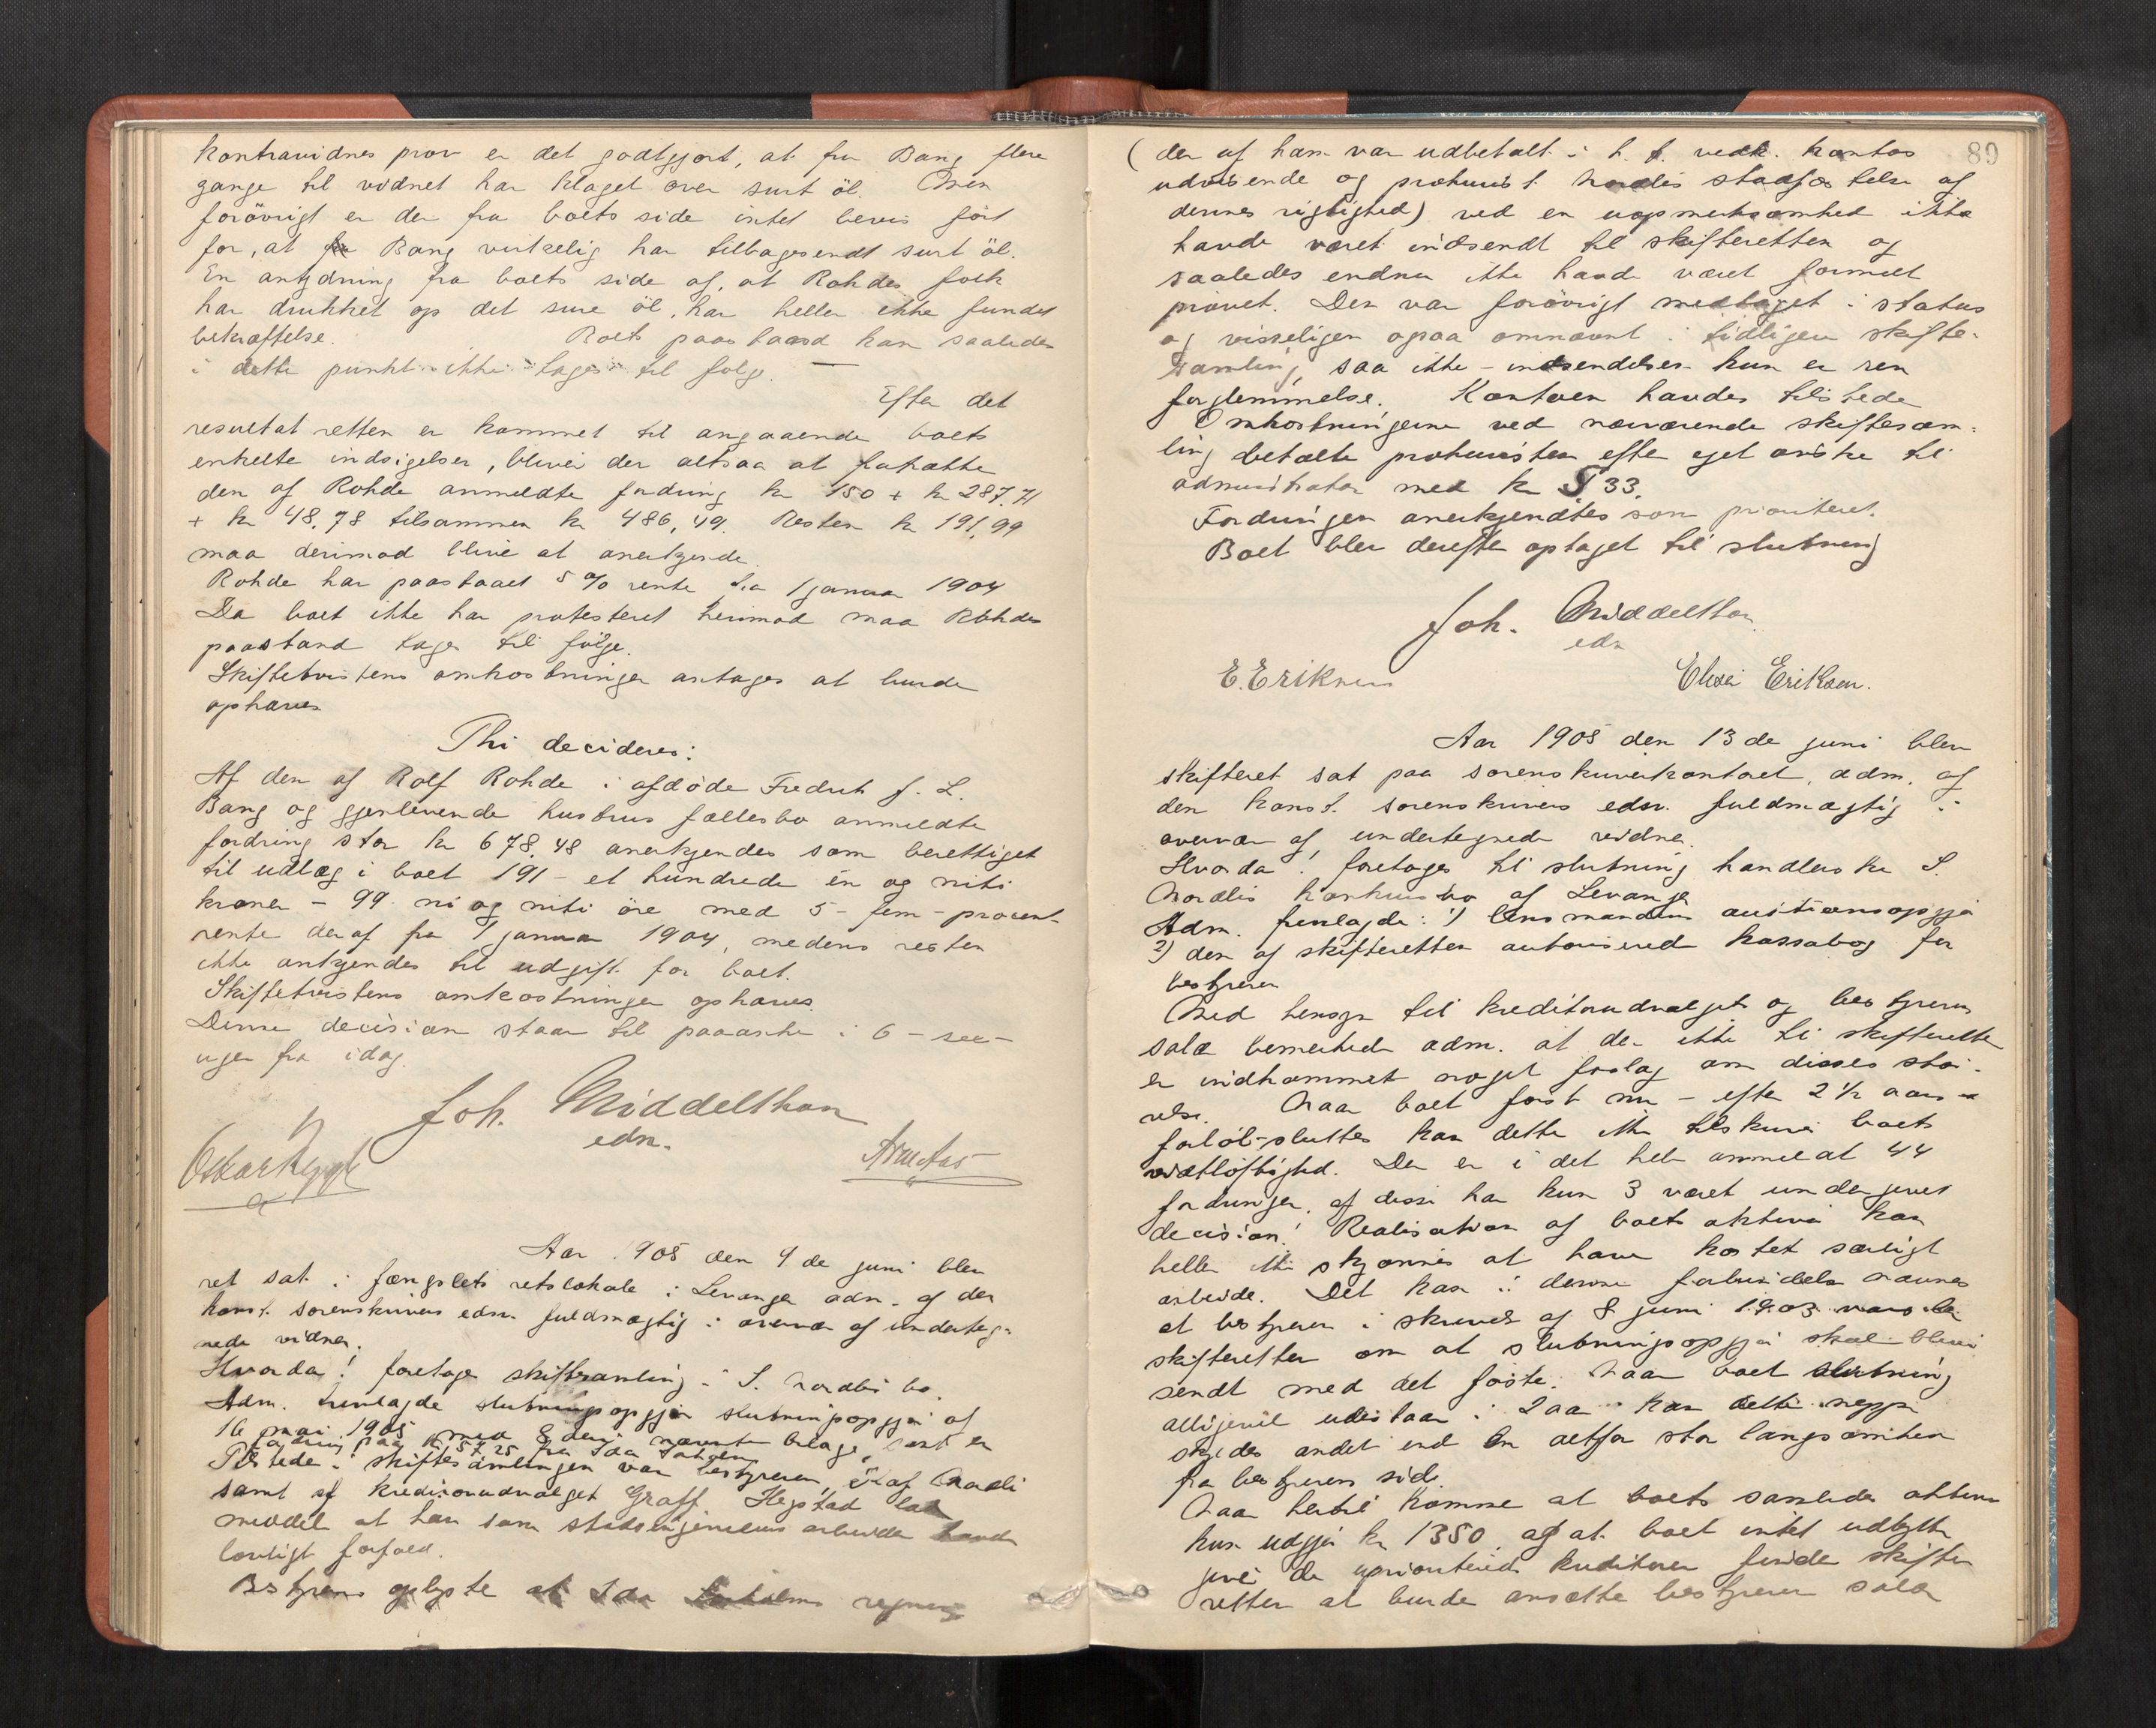 kontravidnes prov er det godtgjort, at fru Bang flere
gange til vidnet har klaget over surt öl. Men
forövrigt er der fra boets side intet bevis fört
for, at fru Bang virkelig har tilbagesendt surt öl.
En antydning fra boets side af, at Rohdes folk
har drukket op det sure öl, har heller ikke fundet
bekræftelse. Boets paastand kan saaledes
i dette punkt ikke tages til følge. —
Efter det
resultat retten er kommet til angaaende boets
enkelte indsigelser, bliver der altsaa at fratrætte
den af Rohde anmeldte fordring kr 150 + kr 287,71
+ kr 48,78 tilsammen kr 486,49. Resten kr 191,99
maa derimod blive at anerkjende.
Rohde har paastaaet 5% rente fra 1 januar 1904
Da boet ikke har protesteret herimod maa Rohdes
paastand tages til følge.
Skiftetvistens omkostninger antages at burde
ophæves
Thi decideres:
Af den af Rolf Rohde i afdöde Fredrik f. L.
Bang og gjenlevende hustrus fællesbo anmeldte
fordring stor kr 678,48 anerkjendes som berettiget
til udlæg i boet 191 - et hundrede én og niti
kroner - 99 ni og niti öre med 5 - fem - procent
rente deraf fra 1 januar 1904, medens resten
ikke ankjendes til udgift for boet.
Skiftetvistens omkostninger ophæves.
Denne decision staar til paaanke i 6 - sex -
uger fra idag.
Joh. Middelthon
edsv.
Aar 1905 den 4de juni blev
ret sat i fængslets retslokale i Levanger adm. af den
konst. sorenskrivers edsv. fuldmægtig i overvær af underteg-
nede vidner.
Hvorda! foretoges skiftesamling i S. Nordlis bo.
Adm. fremlagde slutningsopgjör af
16 mai 1905 med 8 deri nævnte bilage, samt en
fordring paa kr 57,25 fra Ida
Tilstede i skiftesamlingen var bestyreren, Olaf Nordli
samt af kreditorudvalget Graff. Hegstad lod
meddele at han som statsingeniörens arbeider havde
lovligt forfald.
Bestyreren oplyste at Ida regning
89
(der af ham var udbetalt i h. t. vedk. kontos
udvisende og prokurist Nordlis stadfæstelse af
dennes rigtighed) ved en uopmerksomhed ikke
havde været indsendt til skifteretten og
saaledes endnu ikke havde været formelt
prövet. Den var forövrigt medtaget i status
og visseligen ogsaa omnævnt i tidligere skifte-
samling, saa ikke - indsendelsen kun er ren
forglemmelse. Kontoen havdes tilstede
Omkostningerne ved nærværende skiftesam-
ling betalte prokuristen efter eget önske til
administrator med kr 33.
Fordringen anerkjendtes som prioriteret.
Boet blev derefter optaget til slutning
Joh. Middelthon
edsv
E. Eriksen
Elise Eriksen.
Aar 1905 den 13de juni blev
skifteret sat paa sorenskriverkontoret, adm. af
den konst. sorenskrivers edsv. fuldmægtig i
overvær af undertegnede vidner.
Hvorda! foretoges til slutning handlerske S.
Nordlis konkursbo af Levanger
Adm. fremlagde: 1) lensmandens auktionsopgjör
2) den af skifteretten autoriserede kassabog for
bestyreren
Med hensyn til kreditorudvalgets og bestyrerens
salær bemerkede adm. at der ikke til skifteretten
er indkommet noget forslag om disses stör-
relse. Naar boet först nu - efter 2 1/2 aars
forløb - sluttes kan dette ikke tilskrives boets
vidtløftighed. Der er i det hele anmeldt 44
fordringer, af disse har kun 3 været undergivet
decision! Realisation af boets aktiva kan
heller ikke skjönnes at have kostet særligt
arbeide. Det kan i denne forbindelse nævnes
at bestyreren i skrivelse af 8 juni 1903
skifteretten om at slutningsopgjör skal blive
sendt med det förste. Naar boets slutning
alligevel udestaar i 2 aar kan dette neppe
skyldes andet end en altfor stor langsomhed
fra bestyrerens side.
Naar hertil kommer at boets samlede aktiva
kun udgjör kr 1350 og at boet intet udbytte
giver de uprioriterede kreditorer finder skifte-
retten at burde ansætte bestyrerens salær